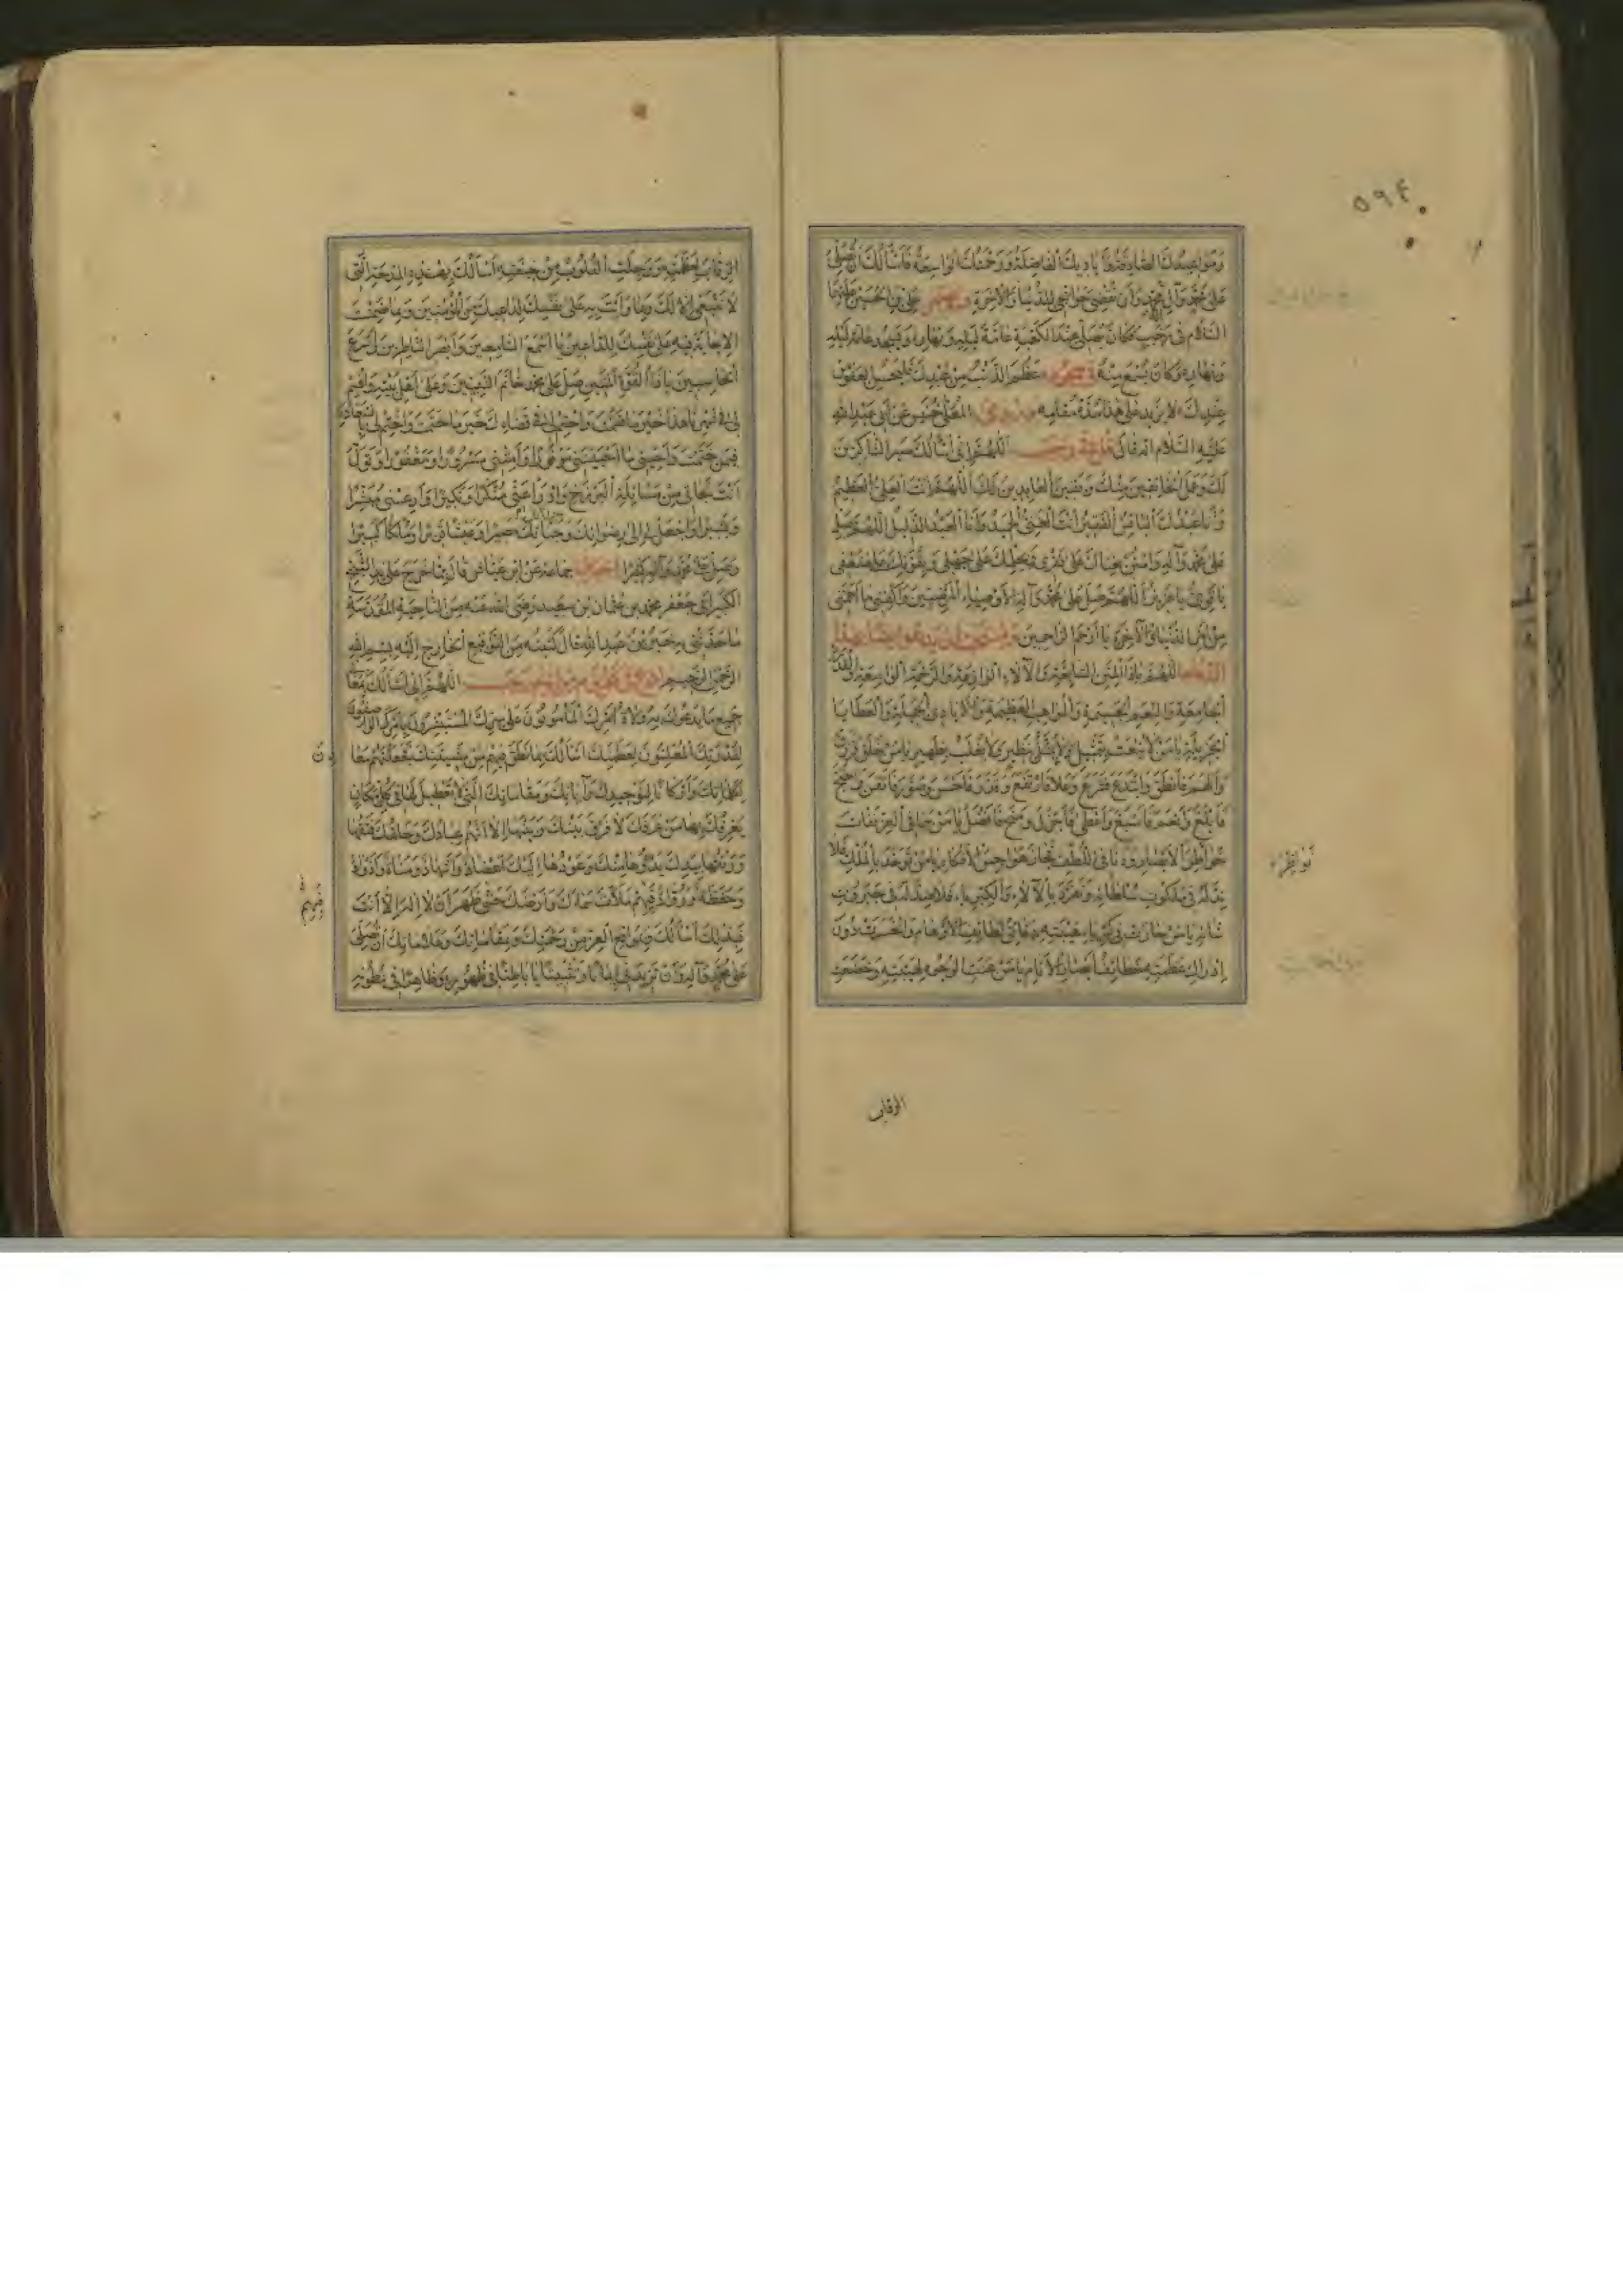 ٥٩٤
ومواعيدك الصادقة واياديك الفاضلة ورحمتك الواسعة فاسألك ان تصلي
على محمد وآل محمد وان تقضي حوائجي للدنيا والآخرة علي بن الحسين عليهما
السلام في رجب فكان يصلي عند الكعبة عامة ليله ونهاره ويسجد عامة ليله
ونهاره وكان يسمع منه في سجوده عظم الذنب من عبدك فليحسن العفو من
عندك لا يزيد على هذا مدة مقامه المعلى بن خنيس عن ابي عبد الله
عليه السلام انه قال قل في رجب اللهم اني اسألك صبر الشاكرين
لك وعمل الخائفين منك ويقين العابدين لك اللهم انت العلي العظيم
وانا عبدك البائس الفقير انت الغني الحميد وانا العبد الذليل اللهم صل
على محمد وآله وامنن بغناك على فقري وبحلمك على جهلي وبقوتك على ضعفي
يا قوي يا عزيز اللهم صل على محمد وآله الاوصياء المرضيين واكفني ما اهمني
من امر الدنيا والآخرة يا ارحم الراحمين ويستحب ان يدعو ايضا بهذا
الدعاء اللهم يا ذا المنن السابغة والآلاء الوازعة والرحمة الواسعة والقدرة
الجامعة والنعم الجسيمة والمواهب العظيمة والايادي الجميلة والعطايا
الجزيلة يا من لا ينعت بتمثيل ولا يمثل بنظير ولا يغلب بظهير يا من خلق فرزق
والهم فانطق وابتدع فشرع وعلا فارتفع وقدر فاحسن وصور فاتقن واحتج
فابلغ وانعم فاسبغ واعطى فاجزل ومنح فافضل يا من سما في العز ففات
خواطر الابصار ودنا في اللطف فجاز هواجس الافكار يا من توحد بالملك فلا
ند له في ملكوت سلطانه وتفرد بالآلاء والكبرياء فلا ضد له في جبروت
شانه يا من حارت في كبرياء هيبته دقائق لطائف الاوهام وانحسرت دون
ادراك عظمته خطائف ابصار الانام يا من عنت الوجوه لهيبته وخضعت
نواظر
الرقاب
الرقاب لعظمته ووجلت القلوب من خيفته اسألك بهذه المدحة التي
لا تنبغي الا لك وبما وأيت به على نفسك لداعيك من المؤمنين وبما ضمنت
الاجابة فيه على نفسك للداعين يا اسمع السامعين وابصر الناظرين واسرع
الحاسبين يا ذا القوة المتين صل على محمد خاتم النبيين وعلى اهل بيته واقسم
لي في شهرنا هذا خير ما قسمت واحتم لي في قضائك خير ما حتمت واختم لي بالسعادة
فيمن ختمت واحيني ما احييتني موفورا وامتني مسرورا ومغفورا وتول
انت نجاتي من مسائلة البرزخ وادرأ عني منكرا ونكيرا وار عيني مبشرا
وبشيرا واجعل لي الى رضوانك وجنانك مصيرا وعيشا قريرا وملكا كبيرا
وصل على محمد وآله كثيرا اخبرني جماعة عن ابن عياش قال مما خرج على يد الشيخ
الكبير ابي جعفر محمد بن عثمان بن سعيد رضي الله عنه من الناحية المقدسة
ما حدثني به خير بن عبد الله قال كتبته من التوقيع الخارج اليه بسم الله
الرحمن الرحيم ادع في كل يوم من ايام رجب اللهم اني اسألك بمعاني
جميع ما يدعوك به ولاة امرك المأمونون على سرك المستبشرون بامرك الواصفون
لقدرتك المعلنون لعظمتك اسألك بما نطق فيهم من مشيتك فجعلتهم معادن
لكلماتك واركانا لتوحيدك وآياتك ومقاماتك التي لا تعطيل لها في كل مكان
يعرفك بها من عرفك لا فرق بينك وبينها الا انهم عبادك وخلقك فتقها
ورتقها بيدك بدؤها منك وعودها اليك اعضاد واشهاد ومناة واذواد
وحفظة ورواد فبهم ملأت سماءك وارضك حتى ظهر ان لا اله الا انت
فبذلك اسألك وبمواقع العز من رحمتك وبمقاماتك وعلاماتك ان تصلي
على محمد وآله وان تزيدني ايمانا وتثبيتا يا باطنا في ظهوره وظاهرا في بطونه